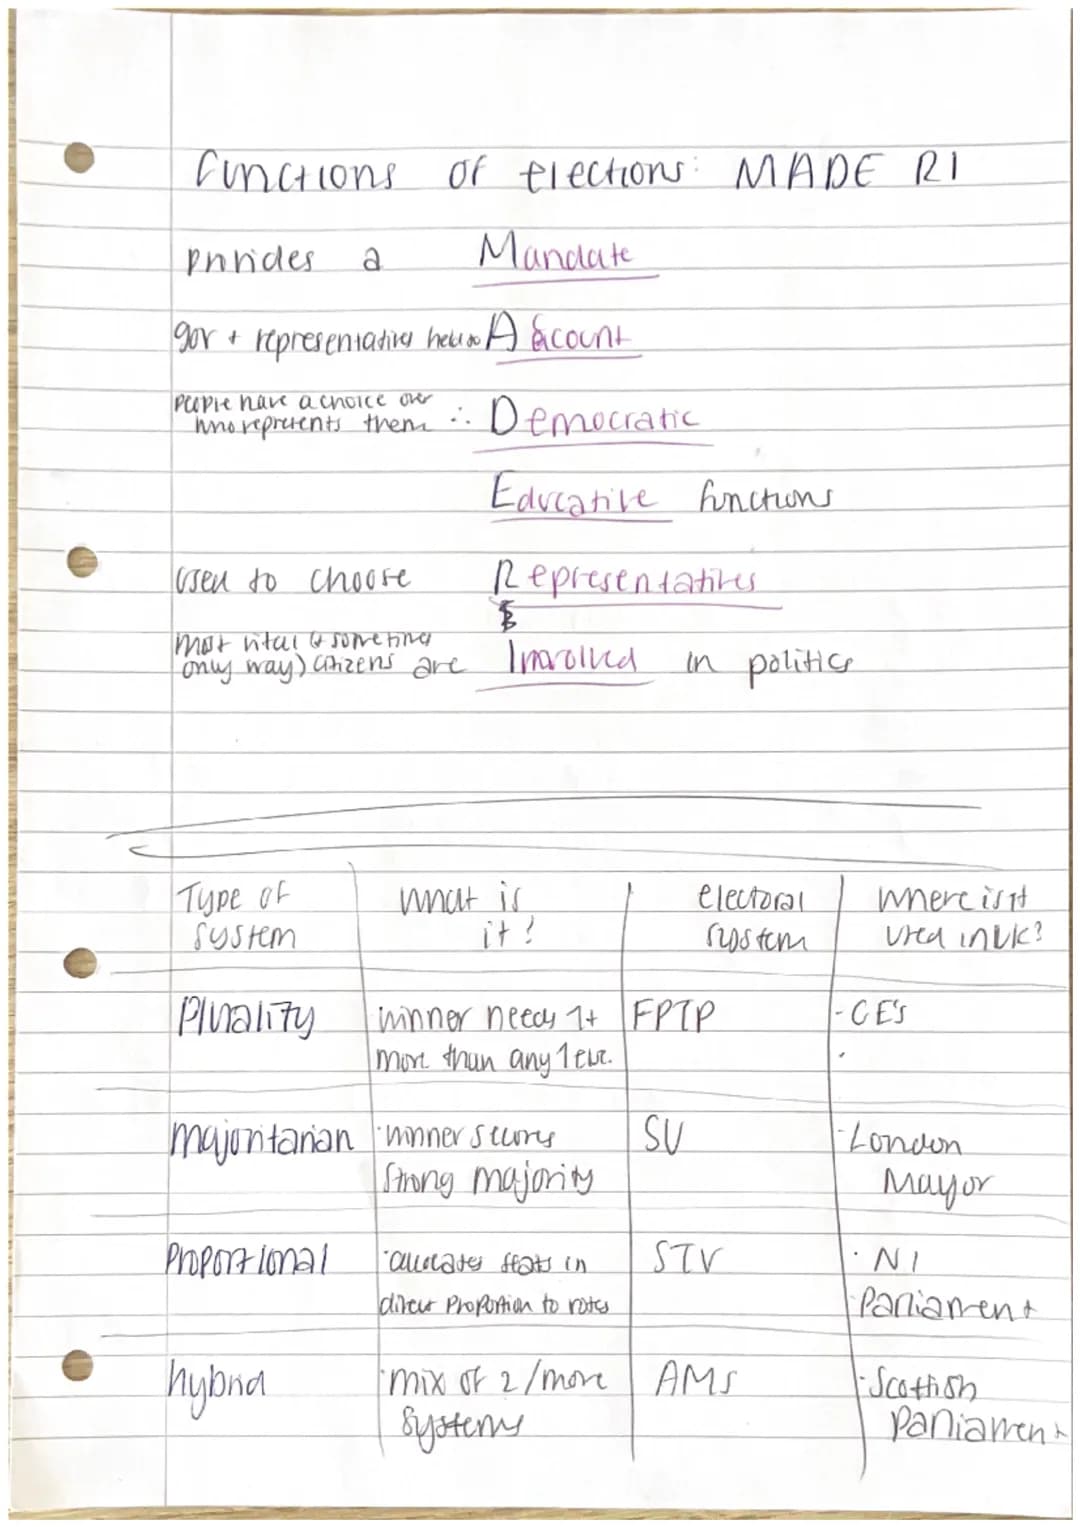 functions of elections: MADE RI
provides a Mandate
gov + representatives held to Account
people have a choice over
who represents them ∴ Democratic
Educative functions
used to choose Representatives
most vital (& sometimes
only way) citizens are Involved in politics
Type of system
what is it?
electoral system
where is it used in UK?
Plurality
winner needs 1+
more than any 1 else.
FPTP
- GE's
majoritarian
· winner secures
strong majority
SV
- London
Mayor
Proportional
· allocates seats in
direct proportion to votes
STV
· NI
Parliament
hybrid
· mix of 2/more
systems
AMS
· Scottish
Parliament